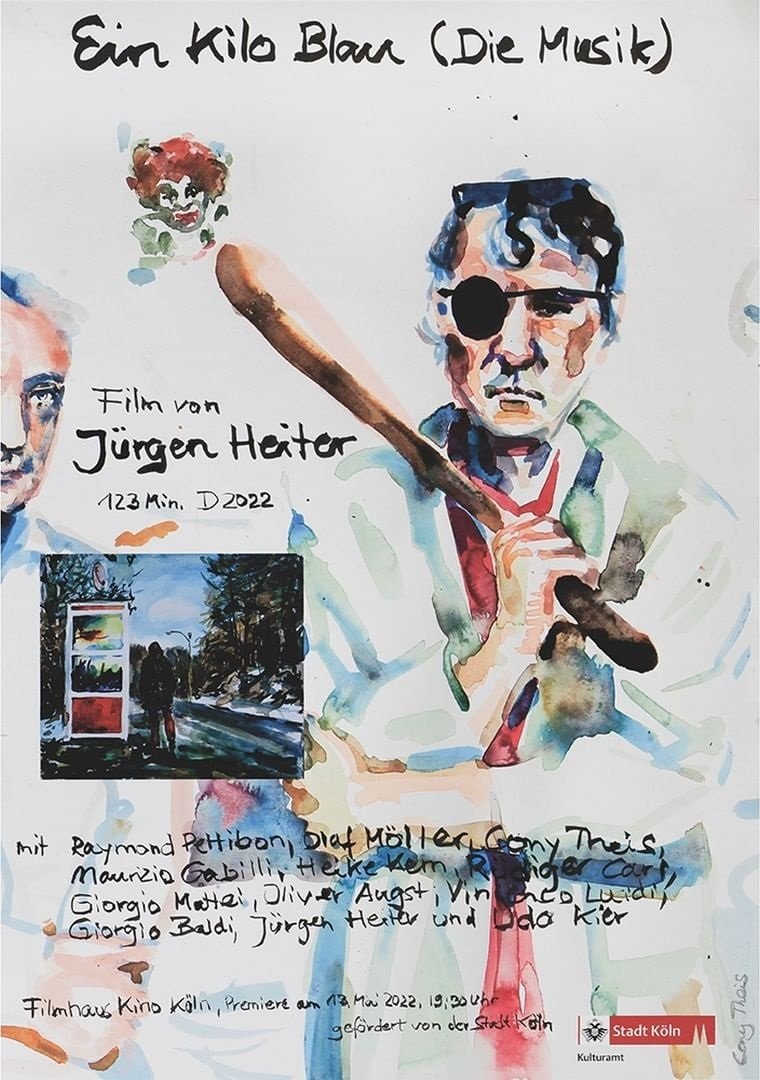 Ein Kilo Blau (Die Musik)
Film von
Jürgen Heiter
123 Min. D 2022
mit Raymond Pettibon, Olaf Möller, Cony Theis,
Maurizio Gabilli, Heike Kern, Rüdiger Carl,
Giorgio Mattei, Oliver Augst, Lucidi,
Giorgio Baldi, Jürgen Heiter und Udo Kier
Filmhaus Kino Köln, Premiere am 13. Mai 2022, 19,30 Uhr
gefördert von der Stadt Köln
Stadt Köln
Kulturamt
Cony Theis